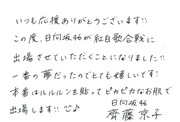 いつも応援ありがとうございます!!
この度、日向坂46が紅白歌合戦に
出場させていただくことになりました!!
一番の夢だったのでとても嬉しいです!
本番はルルルンを貼ってピカピカなお肌で
出場します!!
日向坂46
齊藤京子